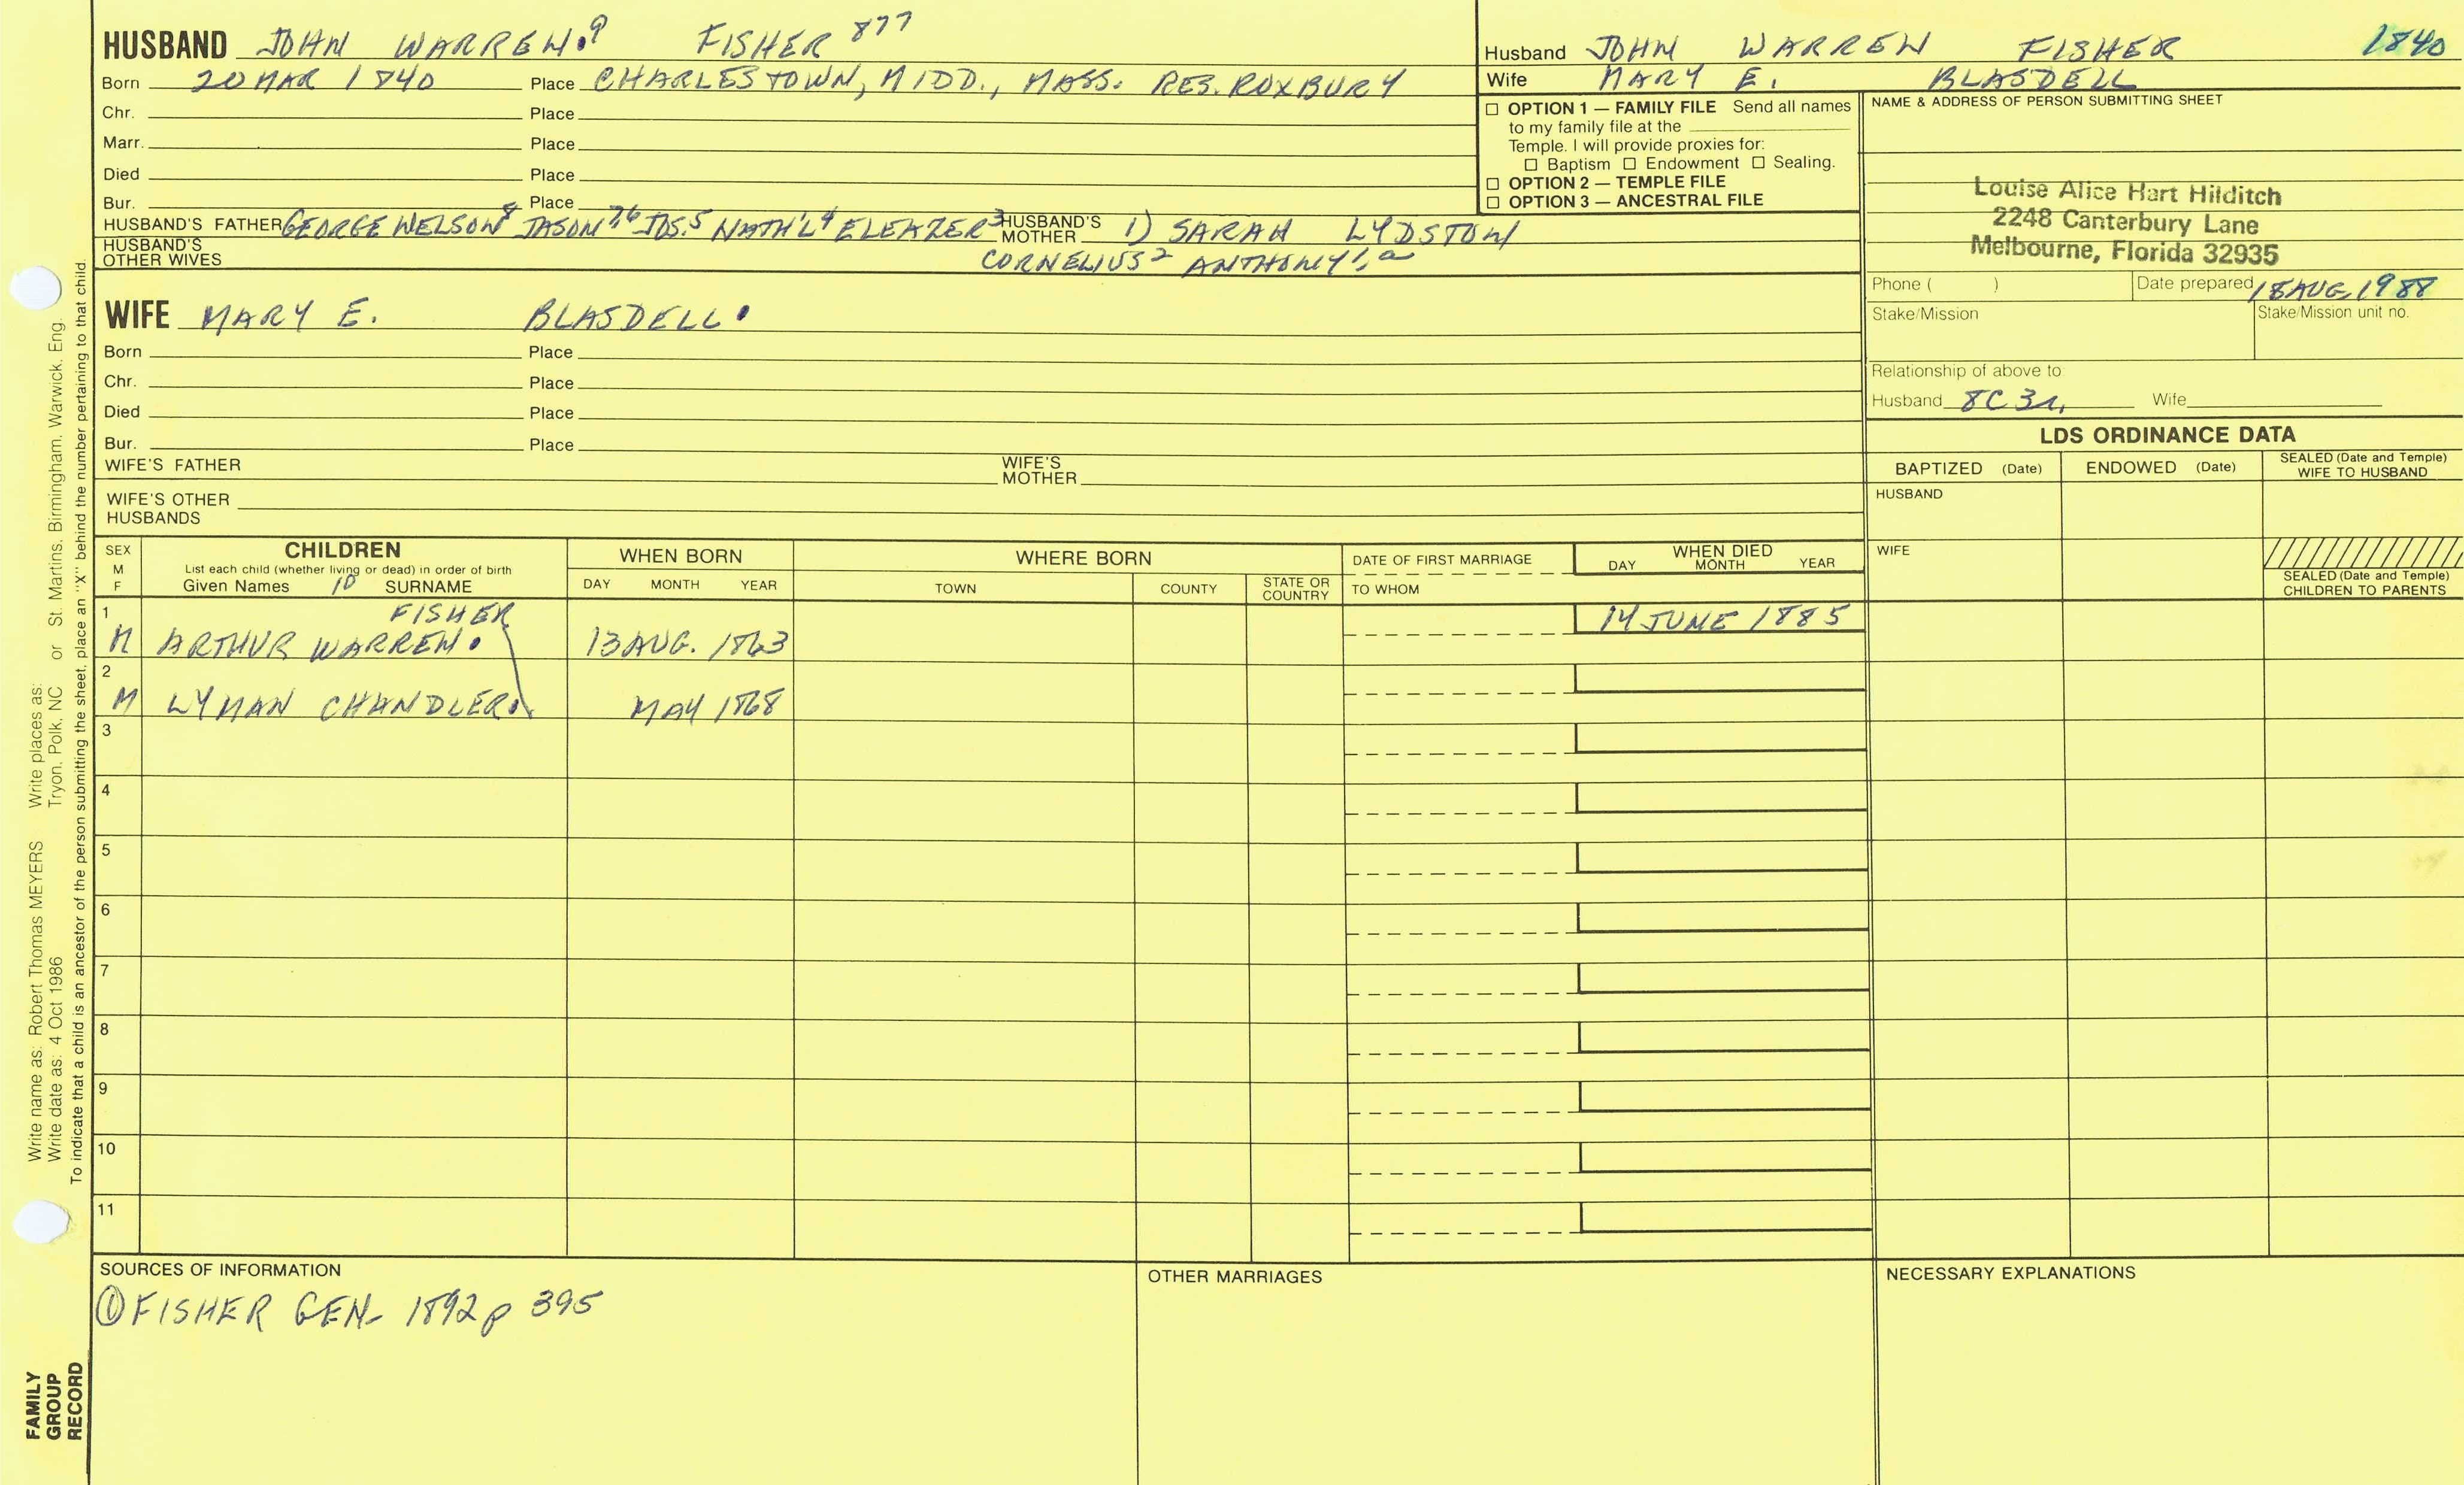 HUSBAND JOHN WARREN.9 FISHER 877
Born 20 MAR 1840 Place CHARLESTOWN, MIDD., MASS. RES. ROXBURY
Chr. Place
Marr. Place
Died Place
Bur. Place
HUSBAND'S FATHER GEORGE WELSON8 JASON76 JOS.5 NATH'L4 ELEAZER3 HUSBAND'S MOTHER 1) SARAH LYDSTON
HUSBAND'S OTHER WIVES CORNELIUS2 ANTHONY1,a
WIFE MARY E. BLASDELL.
Born Place
Chr. Place
Died Place
Bur. Place
WIFE'S FATHER WIFE'S MOTHER
WIFE'S OTHER
HUSBANDS
Husband JOHN WARREN FISHER 1840
Wife MARY E. BLASDELL
☐ OPTION 1 — FAMILY FILE Send all names
to my family file at the
Temple. I will provide proxies for:
☐ Baptism ☐ Endowment ☐ Sealing.
☐ OPTION 2 — TEMPLE FILE
☐ OPTION 3 — ANCESTRAL FILE
NAME & ADDRESS OF PERSON SUBMITTING SHEET
Louise Alice Hart Hilditch
2248 Canterbury Lane
Melbourne, Florida 32935
Phone ( ) Date prepared 18 AUG 1988
Stake/Mission Stake/Mission unit no.
Relationship of above to
Husband 8C 3r, Wife
LDS ORDINANCE DATA
BAPTIZED (Date) ENDOWED (Date) SEALED (Date and Temple) WIFE TO HUSBAND
HUSBAND
WIFE
SEALED (Date and Temple)
CHILDREN TO PARENTS
SEX M F
CHILDREN
List each child (whether living or dead) in order of birth
Given Names 10 SURNAME
WHEN BORN
DAY MONTH YEAR
WHERE BORN
TOWN COUNTY STATE OR COUNTRY
DATE OF FIRST MARRIAGE
TO WHOM
WHEN DIED
DAY MONTH YEAR
1 FISHER 14 JUNE 1885
M ARTHUR WARREN. 13 AUG. 1863
2
M LYMAN CHANDLER. MAY 1868
3
4
5
6
7
8
9
10
11
SOURCES OF INFORMATION
① FISHER GEN- 1892 p 395
OTHER MARRIAGES
NECESSARY EXPLANATIONS
Write name as: Robert Thomas MEYERS Write places as:
Write date as: 4 Oct 1986 Tryon, Polk, NC or St. Martins, Birmingham, Warwick, Eng.
To indicate that a child is an ancestor of the person submitting the sheet, place an "X" behind the number pertaining to that child.
FAMILY
GROUP
RECORD